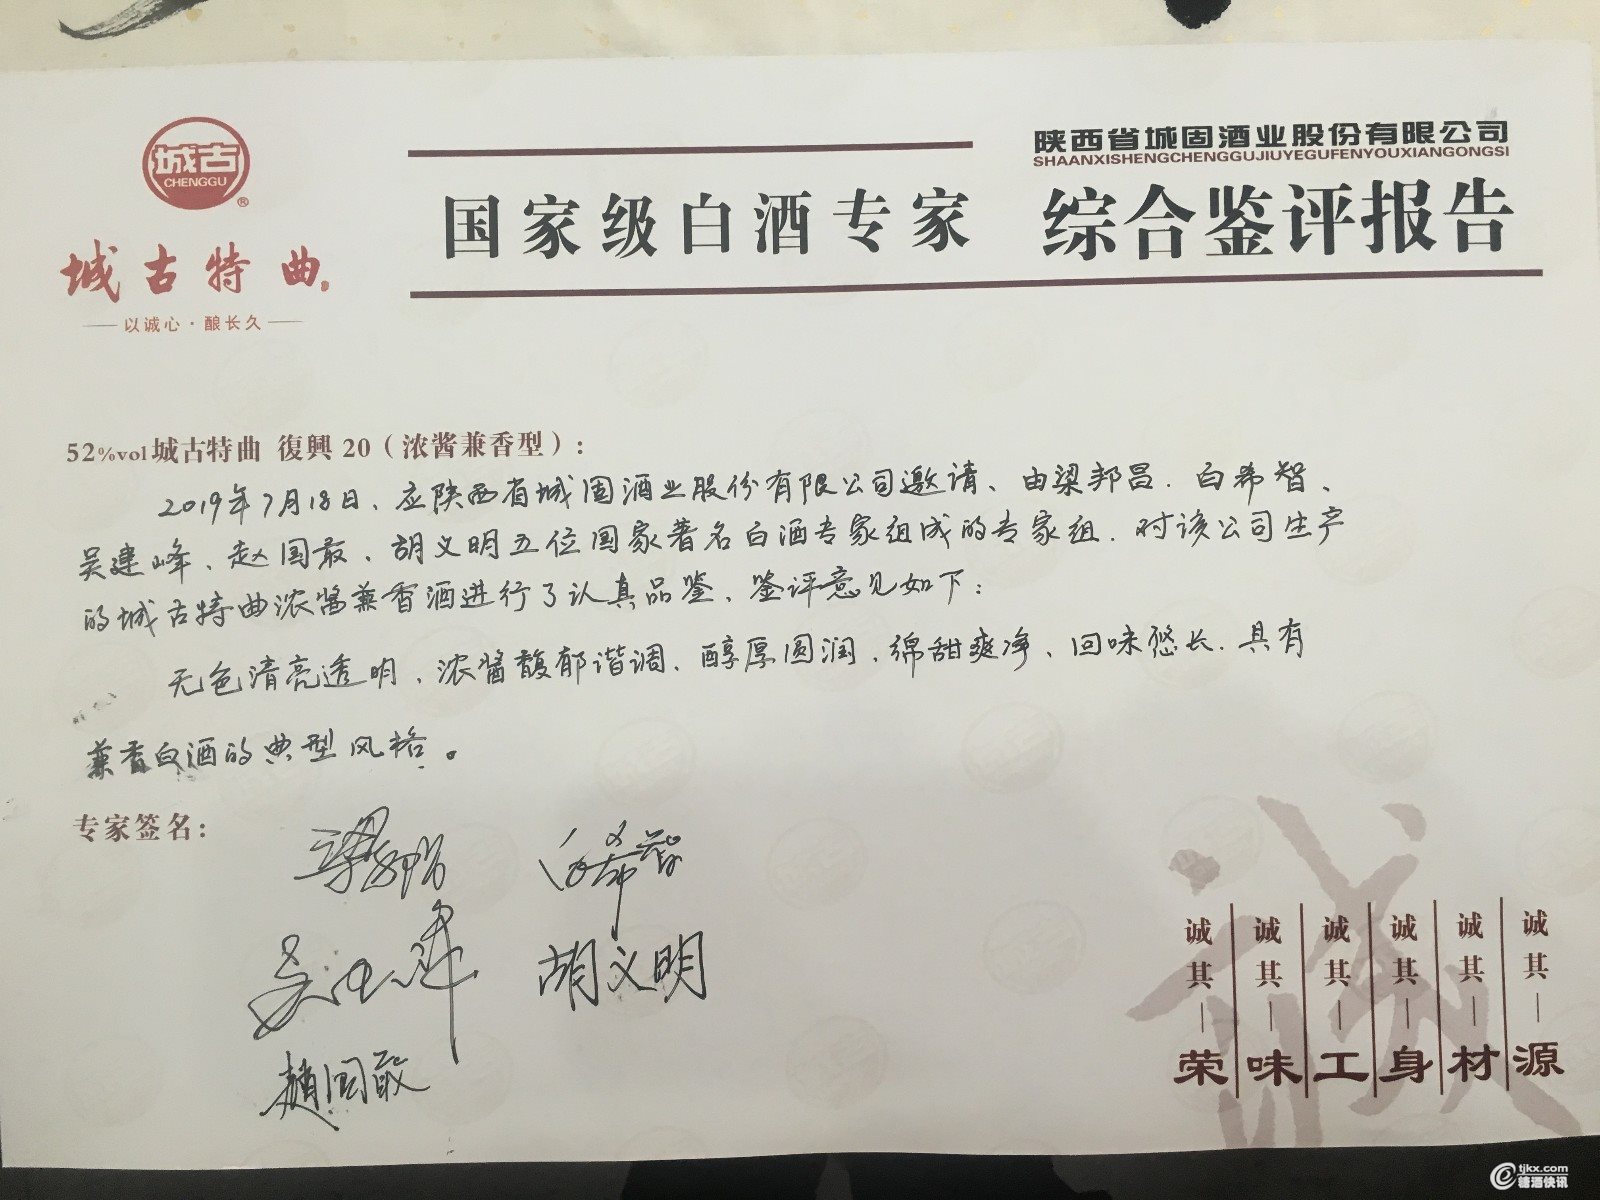 城古
CHENGGU
®
城古特曲
以诚心·酿长久
陕西省城固酒业股份有限公司
SHAANXISHENGCHENGGUJIUYEGUFENYOUXIANGONGSI
国家级白酒专家 综合鉴评报告
52%vol城古特曲 復興 20（浓酱兼香型）:
2019年7月18日、应陕西省城固酒业股份有限公司邀请、由梁邦昌、白希智、
吴建峰、赵国敢、胡义明五位国家著名白酒专家组成的专家组、对该公司生产
的城古特曲浓酱兼香酒进行了认真品鉴、鉴评意见如下：
无色清亮透明、浓酱馥郁谐调、醇厚圆润、绵甜爽净、回味悠长、具有
兼香白酒的典型风格。
专家签名:
梁邦昌 白希智
吴建峰 胡义明
趙国敢
诚其一荣
诚其一味
诚其一工
诚其一身
诚其一材
诚其一源
tjkx.com
糖酒快讯